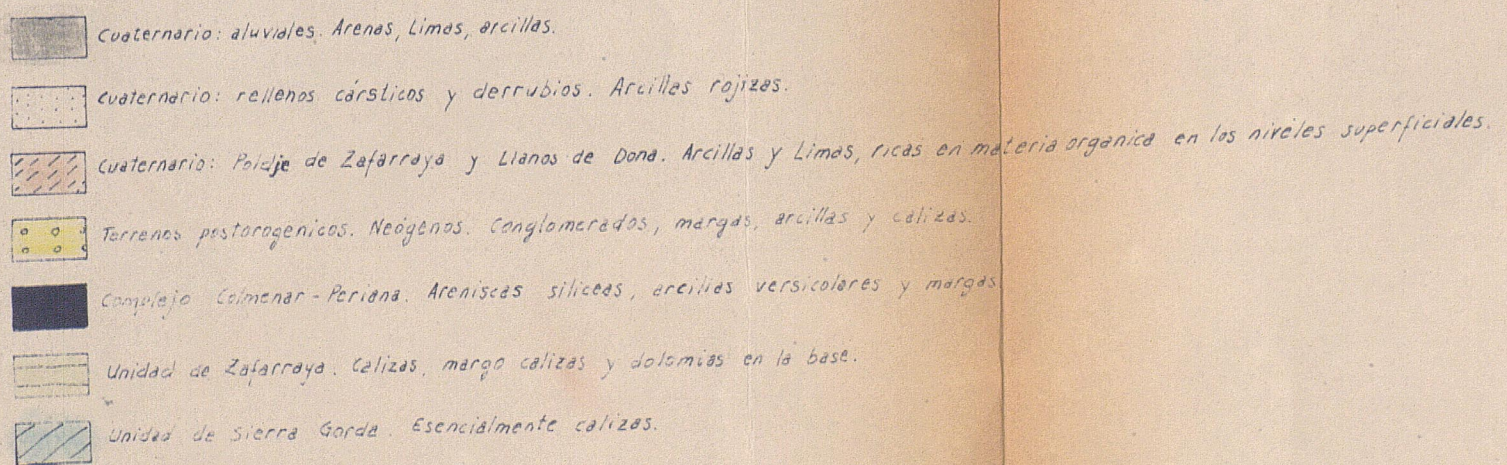 Cuaternario: aluviales. Arenas, Limas, arcillas.
Cuaternario: rellenos cársticos y derrubios. Arcillas rojizas.
Cuaternario: Poldje de Zafarraya y Llanos de Dona. Arcillas y Limas, ricas en materia organica en los niveles superficiales.
Terrenos postorogenicos. Neógenos. Conglomerados, margas, arcillas y calizas.
Complejo Colmenar-Periana. Areniscas siliceas, arcillas versicolores y margas.
Unidad de Zafarraya. Calizas, margo calizas y dolomias en la base.
Unidad de Sierra Gorda. Esencialmente calizas.